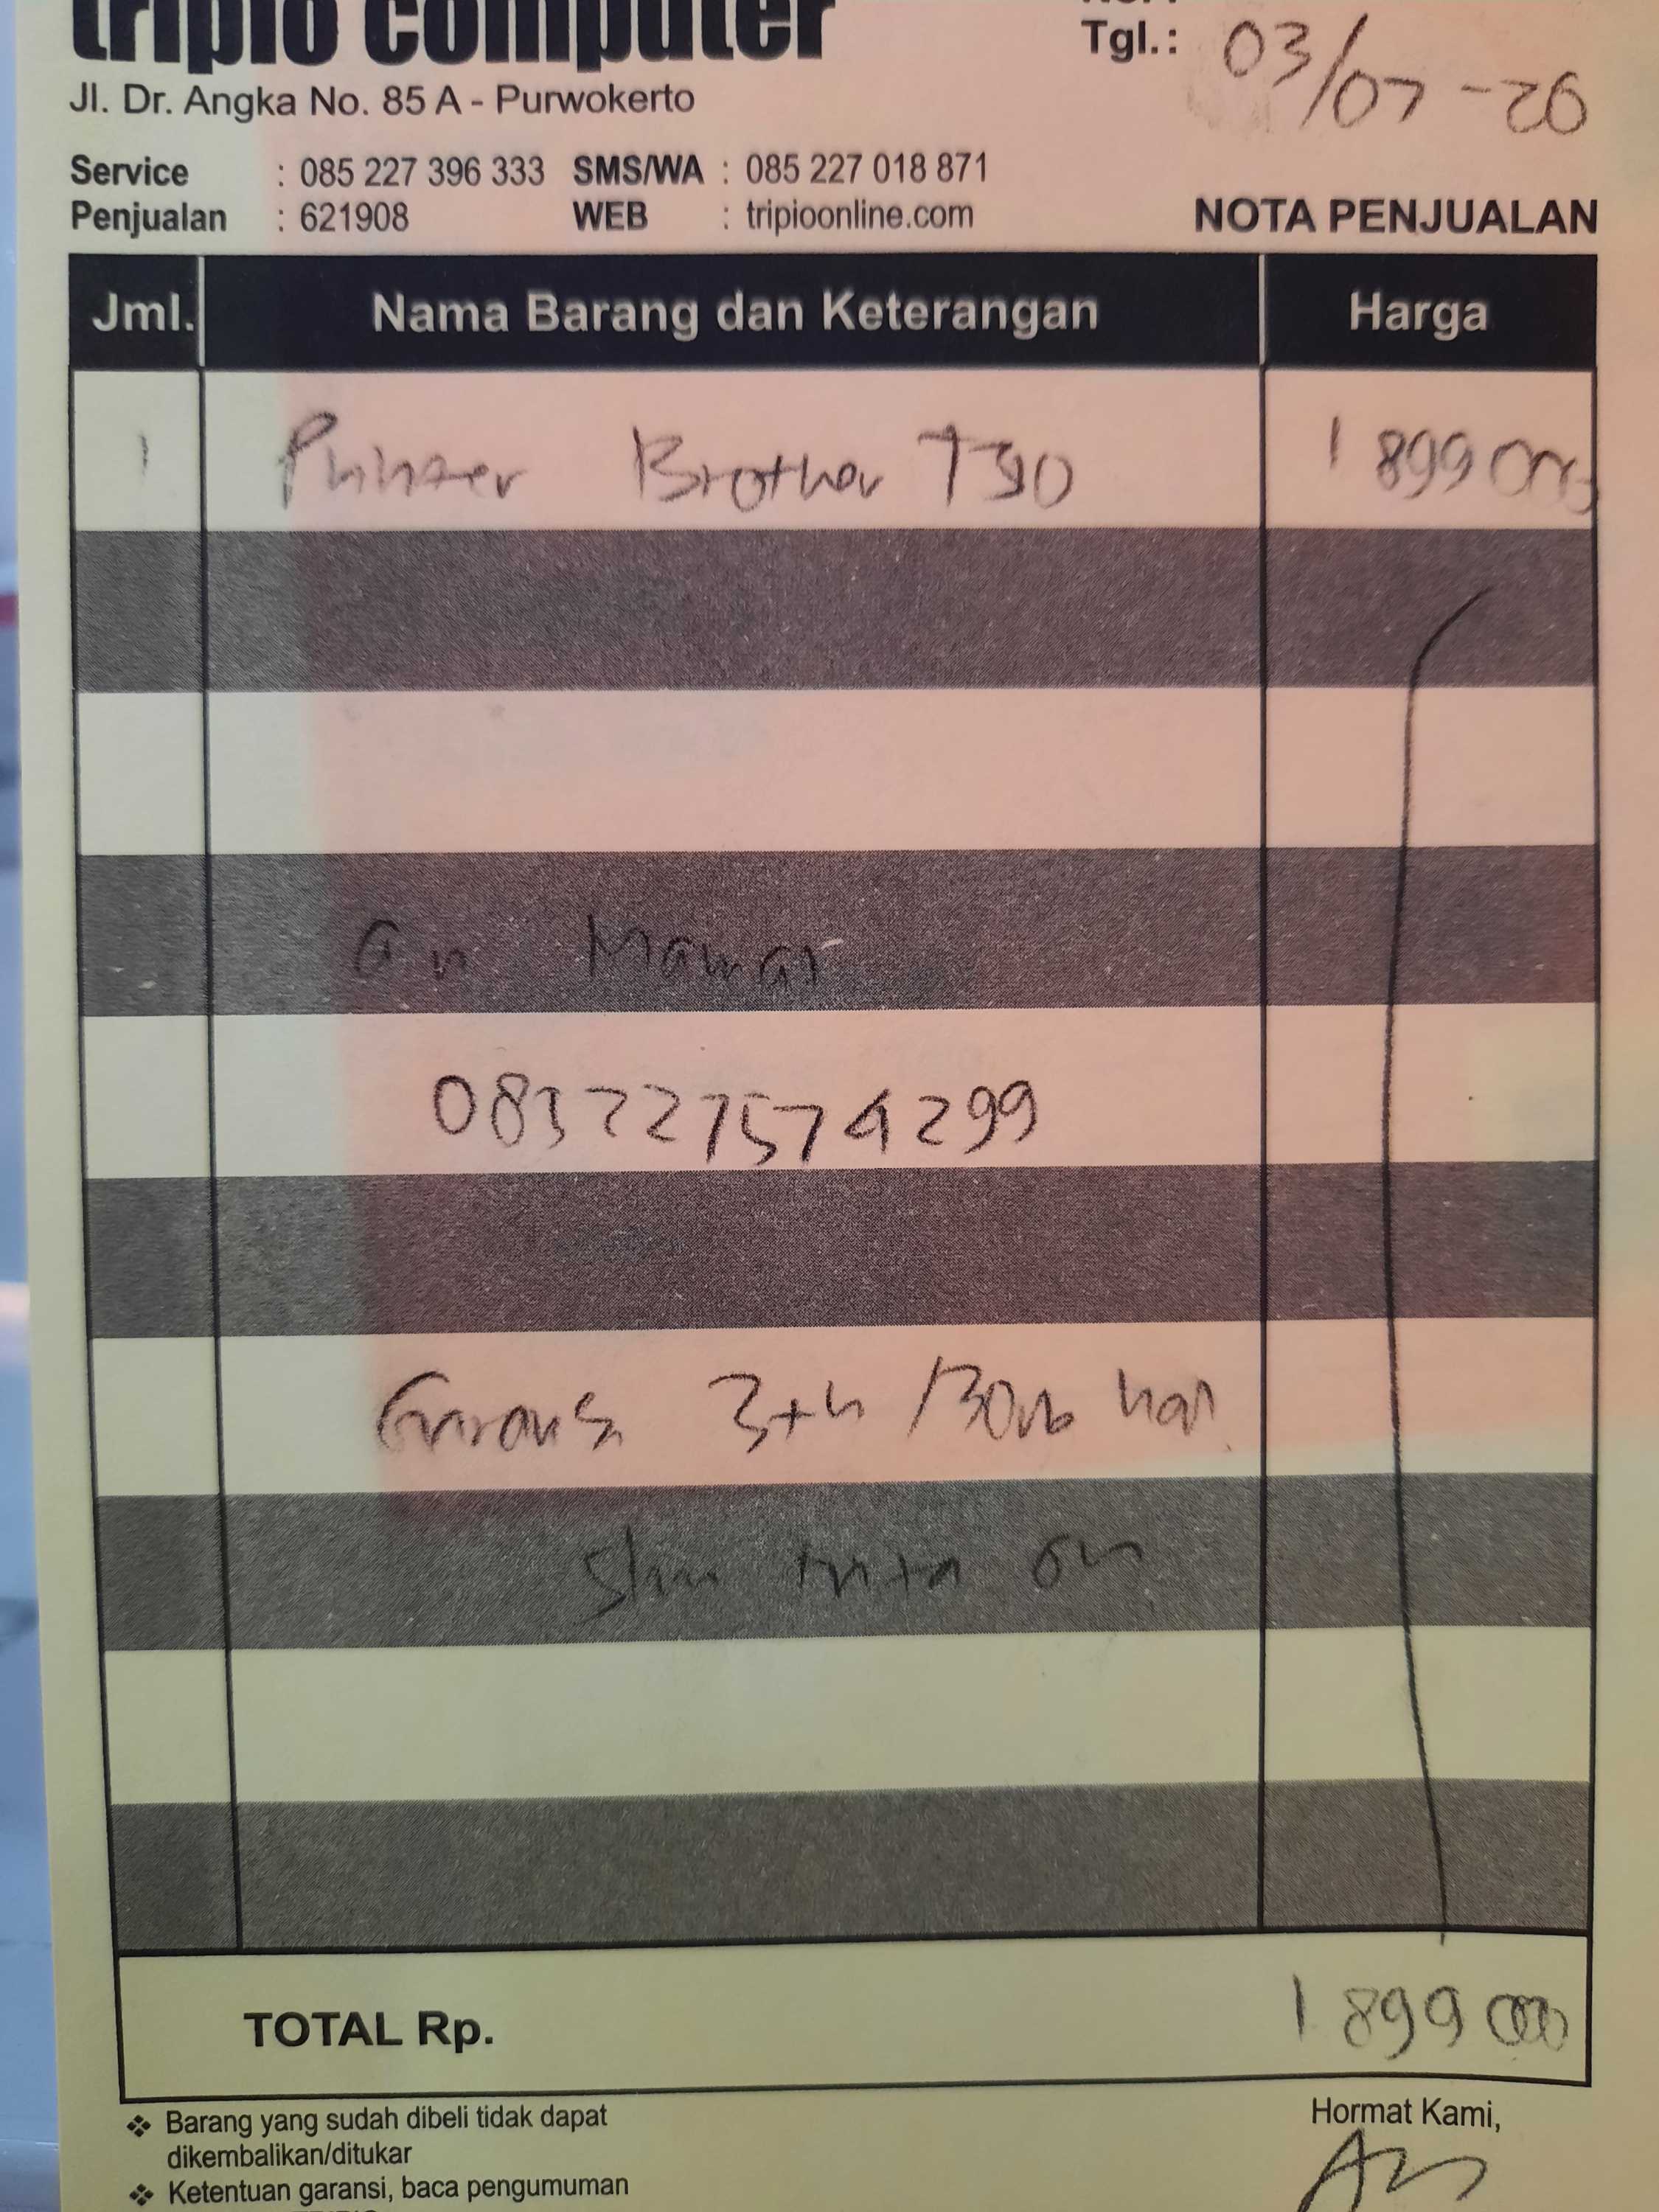 tripio computer
Tgl.: 03/07-26
Jl. Dr. Angka No. 85 A - Purwokerto
Service : 085 227 396 333 SMS/WA : 085 227 018 871
Penjualan : 621908 WEB : tripioonline.com
NOTA PENJUALAN
Jml. Nama Barang dan Keterangan Harga
1 Printer Brother 1 899 000
an Mawar
Garansi 3th /30rb hal
tinta
TOTAL Rp. 1 899 000
❖ Barang yang sudah dibeli tidak dapat
dikembalikan/ditukar
❖ Ketentuan garansi, baca pengumuman
Hormat Kami,